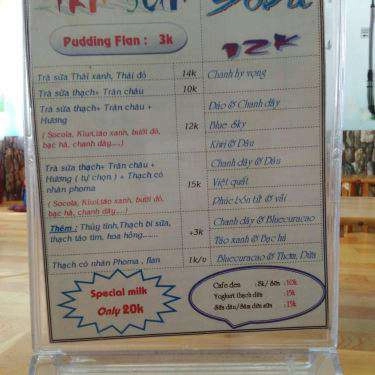 Soda
Pudding Flan : 3k
12K
Trà sữa Thái xanh, Thái đỏ 14k
Trà sữa thạch+ Trân châu 10k
Trà sữa thạch+ Trân châu +
Hương 12k
( Socola, Kiwi,táo xanh, bưởi đỏ,
bạc hà, chanh dây....)
Trà sữa thạch+ Trân châu +
Hương ( tự chọn ) + Thạch có
nhân phoma 15k
( Socola, Kiwi,táo xanh, bưởi đỏ,
bạc hà, chanh dây...)
Thêm : Thủy tinh,Thạch bi sữa,
thạch táo tím, hoa hồng....... +3k
Thạch có nhân Phoma , flan 1k/v
Chanh hy vọng
Dâo & Chanh dây
Blue sky
Kiwi & Dâu
Chanh dây & Dâu
Việt quất
Phúc bồn tử & vải
Chanh dây & Bluecuracao
Táo xanh & Bạc hà
Bluecuracao & Thơm, Dừa
Special milk
Only 20k
Cafe đen : 8k/ Sữa : 10k
Yoghurt thạch dừa : 15k
Sữa dâu/Sâm dứa sữa : 15k